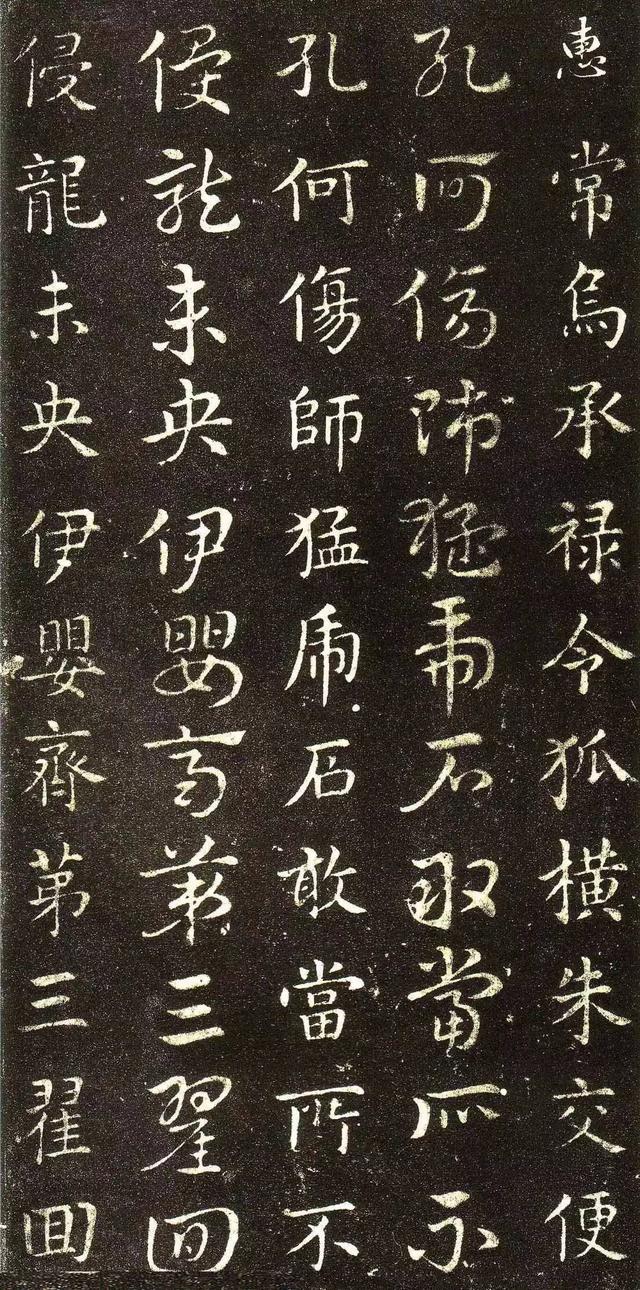 惠常烏承禄令狐橫朱交便
孔何傷師猛虎石敢當所不
孔何傷師猛虎石敢當所不
侵龍未央伊嬰齊第三翟回
侵龍未央伊嬰齊第三翟回